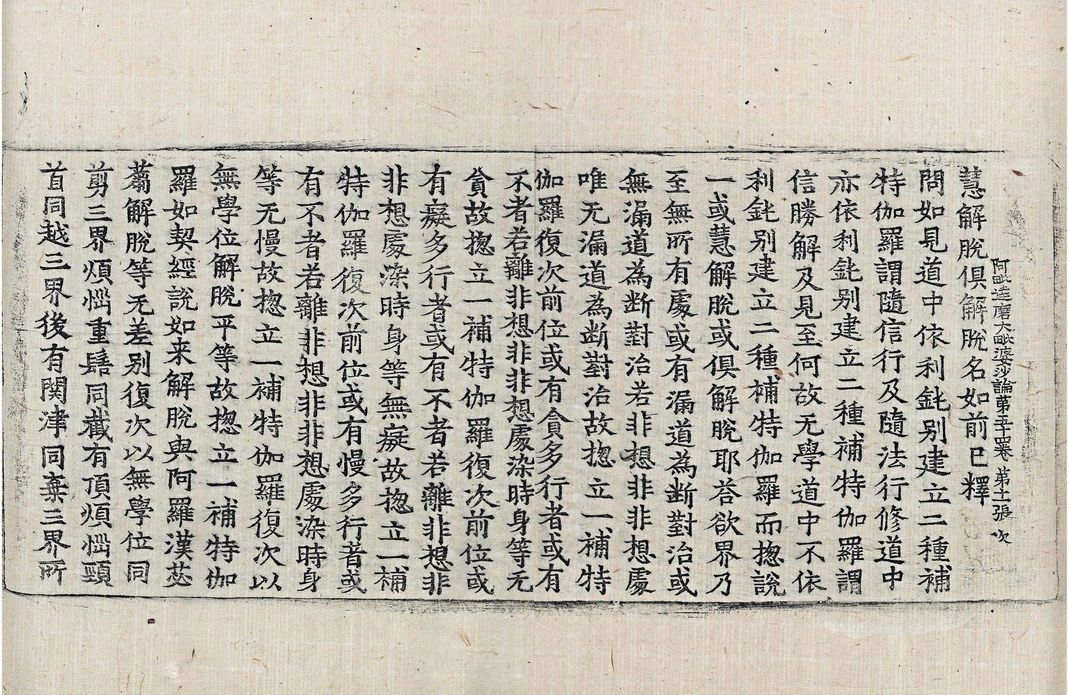 阿毗達磨大毗婆沙論第五十四卷 第十一張 次
慧解脫俱解脫名如前已釋
問如見道中依利鈍別建立二種補
特伽羅謂隨信行及隨法行修道中
亦依利鈍別建立二種補特伽羅謂
信勝解及見至何故无學道中不依
利鈍別建立二種補特伽羅而揔說
一或慧解脫或俱解脫耶荅欲界乃
至無所有處或有漏道為斷對治或
無漏道為斷對治若非想非非想處
唯无漏道為斷對治故揔立一補特
伽羅復次前位或有貪多行者或有
不者若離非想非非想處染時身等无
貪故揔立一補特伽羅復次前位或
有癡多行者或有不者若離非想非
非想處染時身等無癡故揔立一補
特伽羅復次前位或有慢多行者或
有不者若離非想非非想處染時身
等无慢故揔立一補特伽羅復次以
無學位解脫平等故揔立一補特伽
羅如契經說如来解脫與阿羅漢苾
蒭解脫等无差别復次以無學位同
剪三界煩惱重鬚同截有頂煩惱頸
首同越三界後有関津同棄三界所